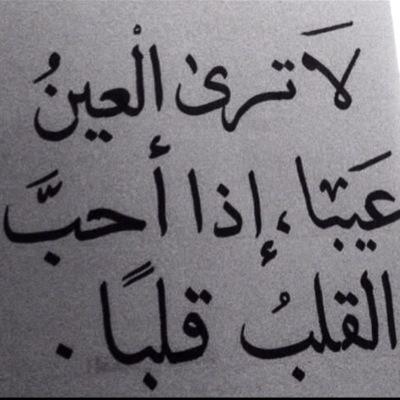 لَا ترىٰ الْعينُ
عَيبْا، إذا أحبَّ
القلبُ قلبًا .